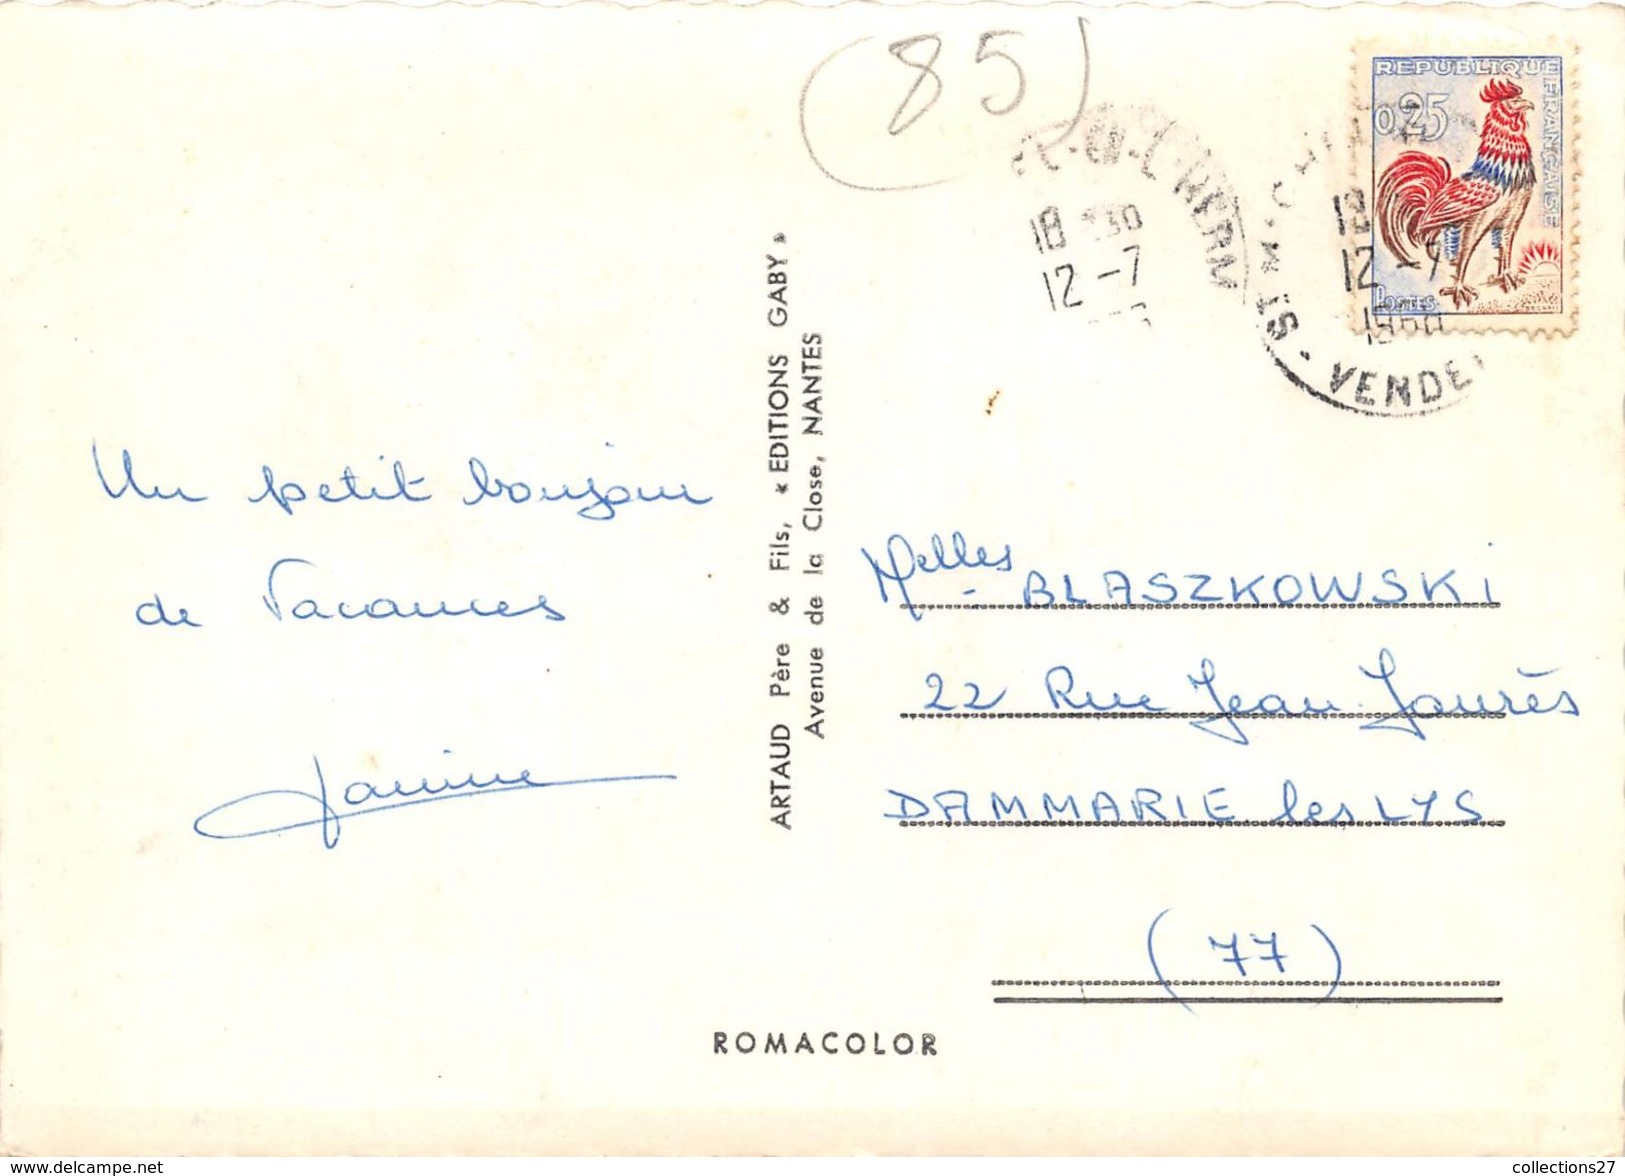 (85)
REPUBLIQUE
FRANÇAISE
0,25
POSTES
18 30
12-7
18
12-7
VENDEE
Un petit bonjour
de Vacances
Janine
ARTAUD Père & Fils, « EDITIONS GABY »
Avenue de la Close, NANTES
Melles BLASZKOWSKI
22 Rue Jean Jaurès
DAMMARIE les LYS
(77)
ROMACOLOR
collections27